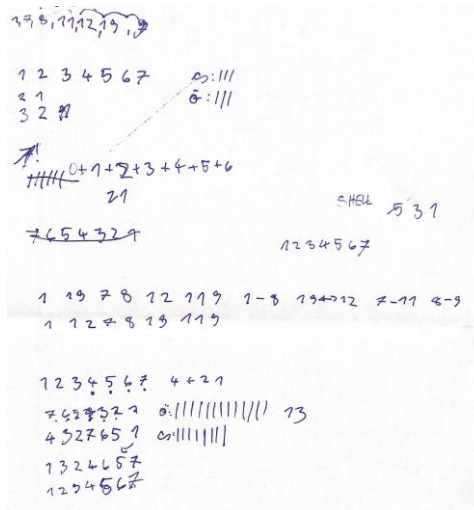 3,7,8,11,12,19,9
1 2 3 4 5 6 7 cs:|||
2 1 ö:|||
3 2 1
7!
0+1+2+3+4+5+6
21
SHELL 5 3 1
7 6 5 4 3 2 1
1 2 3 4 5 6 7
1 19 7 8 12 11 9 1-8 19↔12 7-11 8-9
1 12 7 8 19 11 9
1 2 3 4 5 6 7 4+21
7 6 5 4 3 2 1 ö:||||||||||||| 13
4 3 2 7 6 5 1 cs:||||||||
1 3 2 4 6 5 7
1 2 3 4 5 6 7